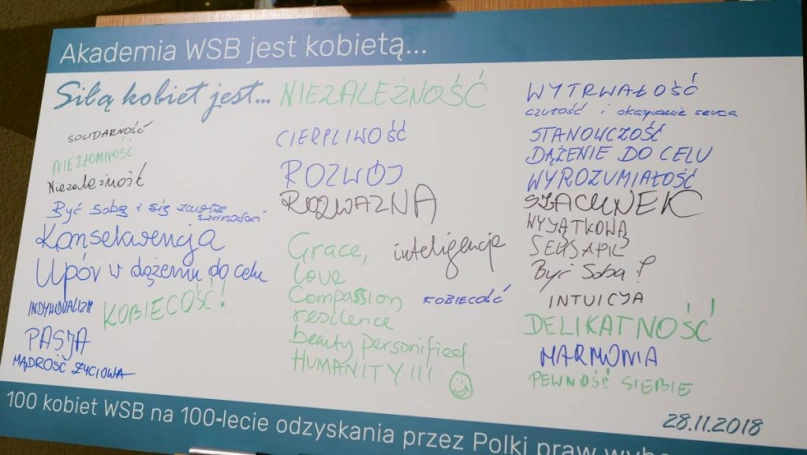 Akademia WSB jest kobietą...
Siłą kobiet jest...
SOLIDARNOŚĆ
NIEZŁOMNOŚĆ
Niezależność
Być sobą i się zawsze
Konsekwencja
Upór w dążeniu do celu
INDYWIDUALIZM
KOBIECOŚĆ!
PASJA
MĄDROŚĆ ŻYCIOWA
NIEZALEŻNOŚĆ
CIERPLIWOŚĆ
ROZWÓJ
ROZWAŻNA
Grace,
inteligencja
love
Compassion
KOBIECOŚĆ
resilence
beauty personified
HUMANITY!!!
WYTRWAŁOŚĆ
czułość i okazywanie serca
STANOWCZOŚĆ
DĄŻENIE DO CELU
WYROZUMIAŁOŚĆ
SZACUNEK
WYJĄTKOWA
SEKSAPIL
Być Sobą!
INTUICJA
DELIKATNOŚĆ
HARMONIA
PEWNOŚĆ SIEBIE
28.11.2018
100 kobiet WSB na 100-lecie odzyskania przez Polki praw